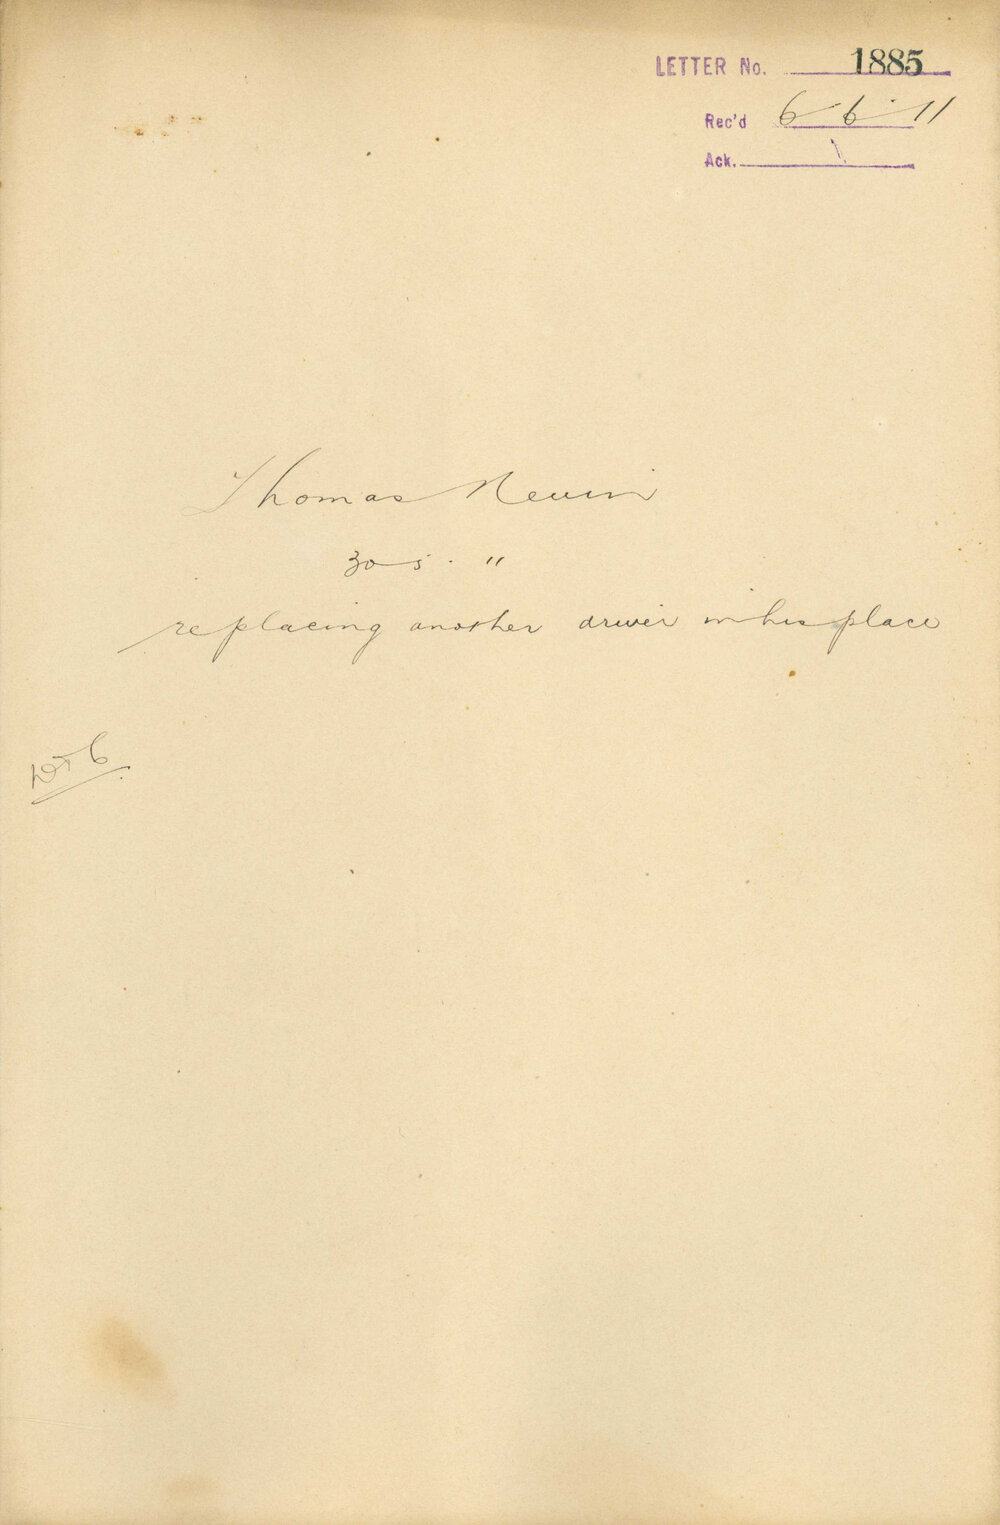 LETTER No. 1885
Rec'd 6 6 11
Ack.
Thomas
305. "
replacing another driver in his place